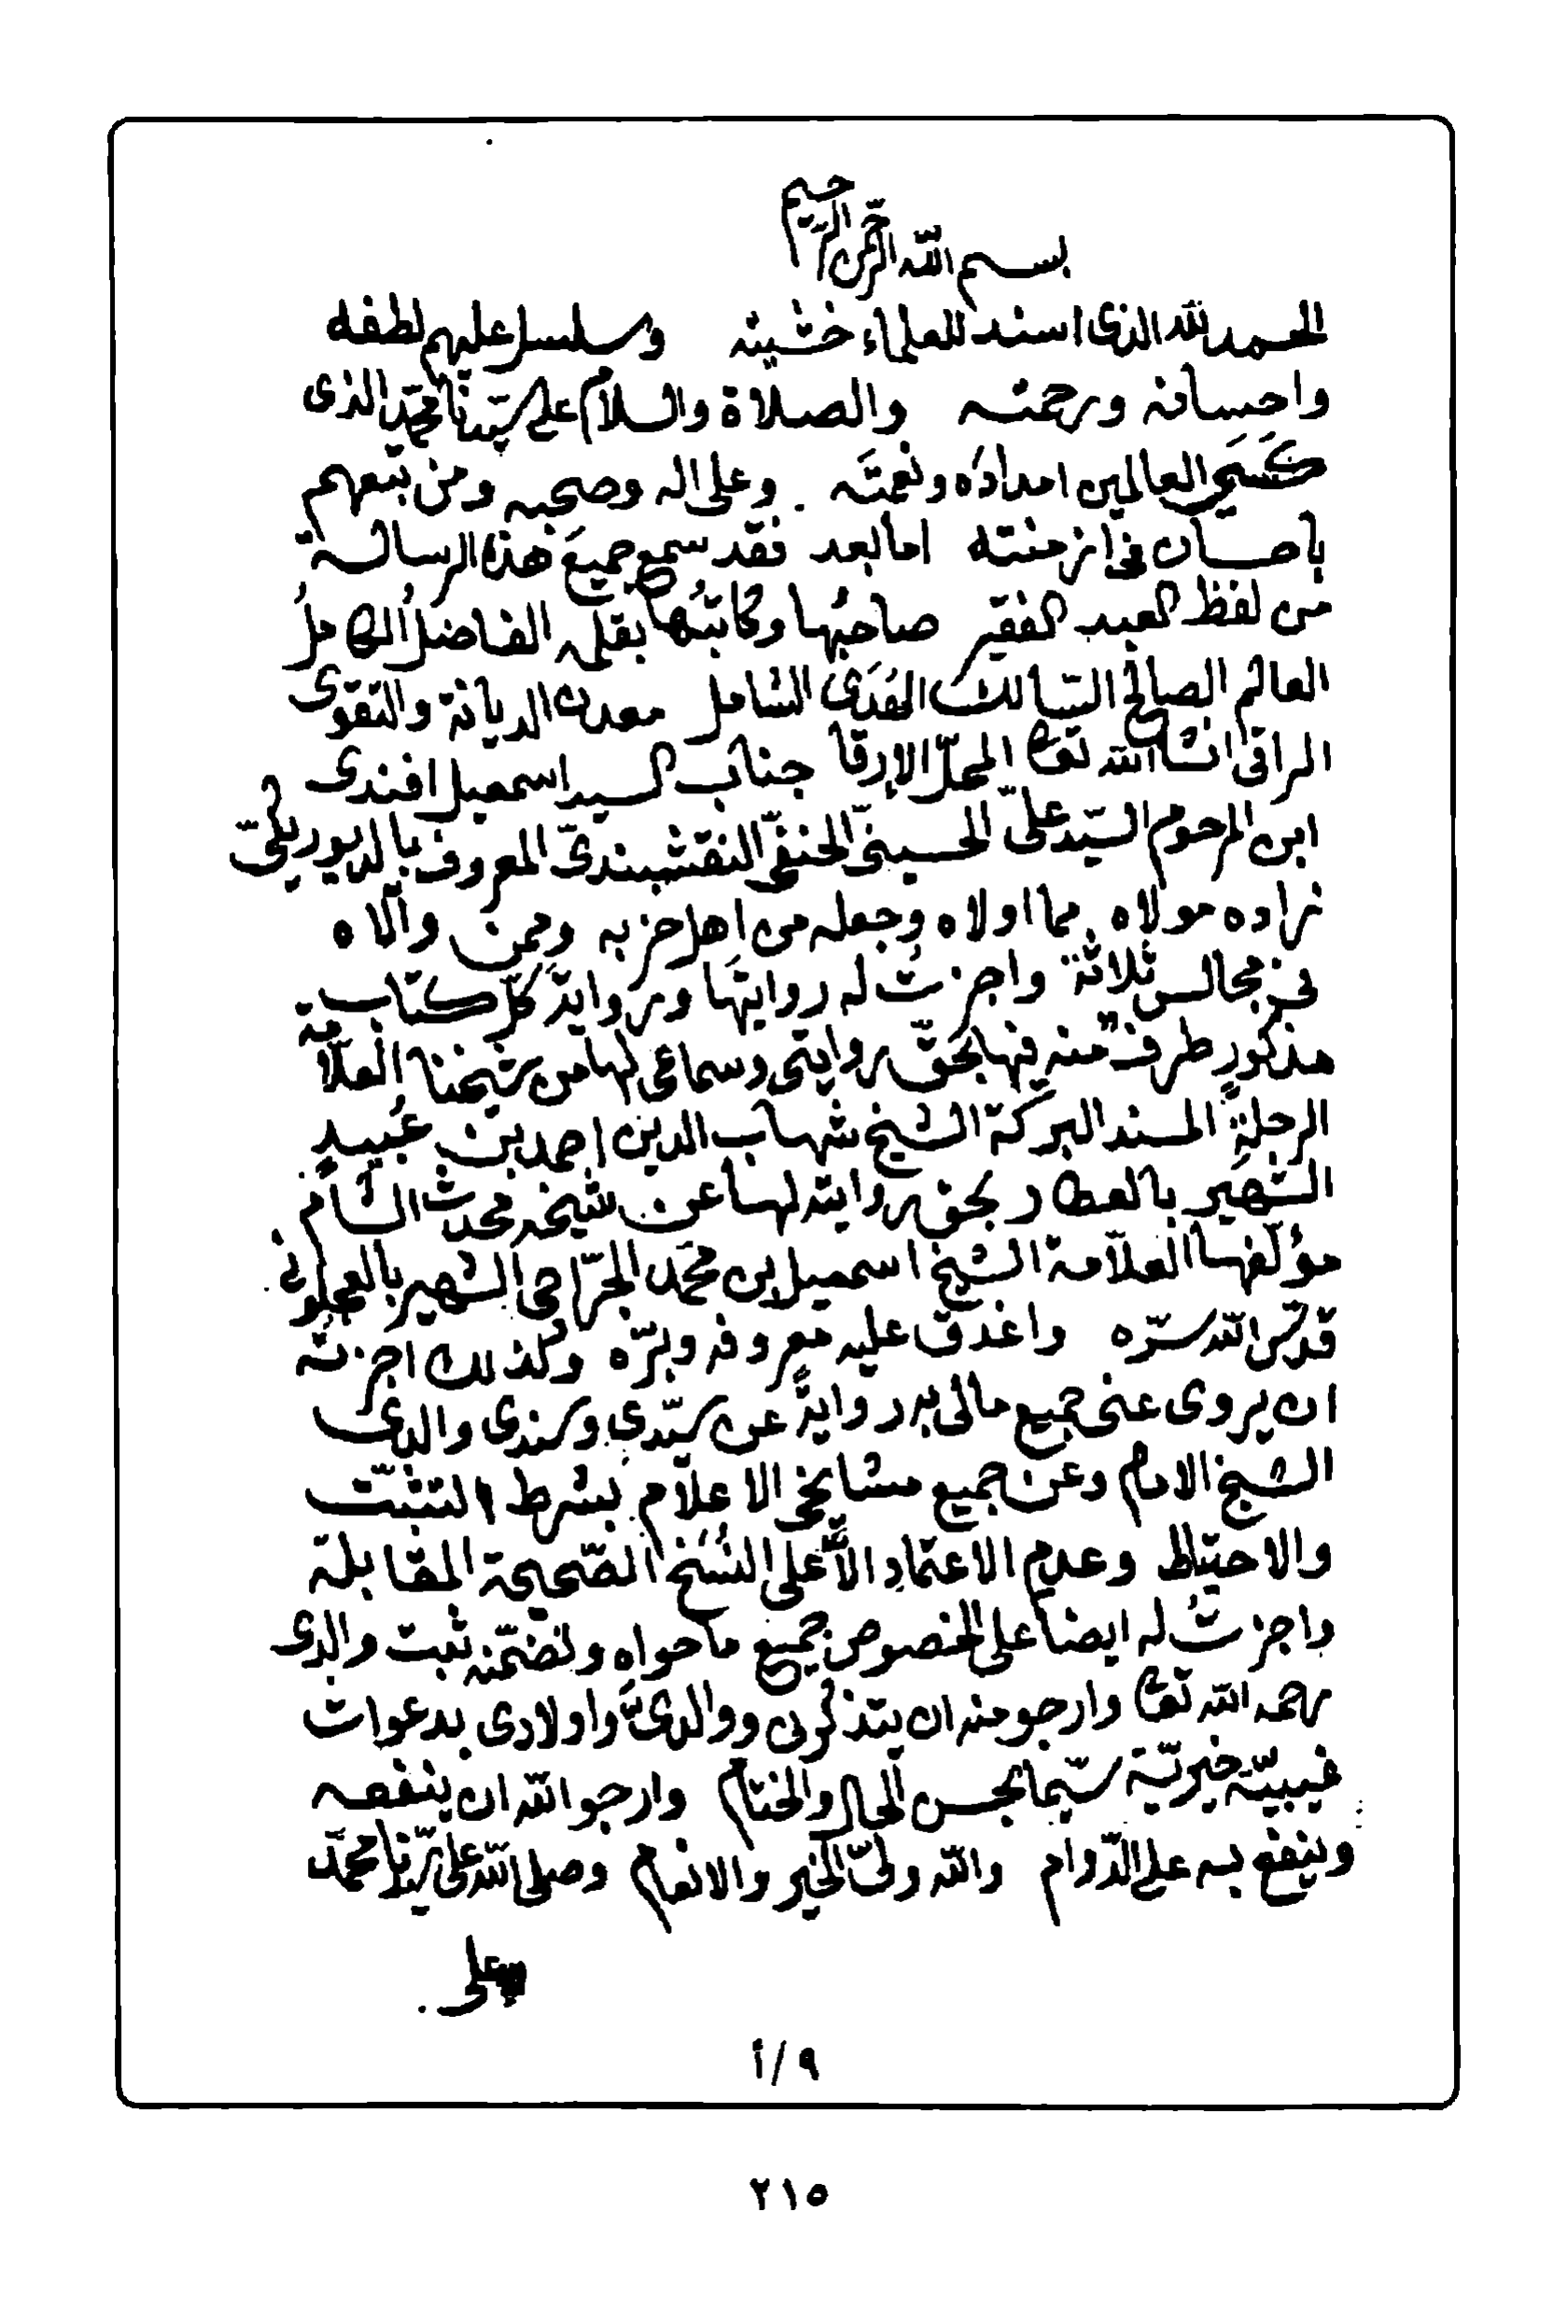 بسم الله الرحمن الرحيم
الحمد لله الذى اسند للعلماء خشيته وسلسل عليهم لطفه
واحسانه ورحمته والصلاة والسلام على سيدنا محمد الذى
العالمين امدادُه ونعمتَه . وعلى اله وصحبه ومن تبعهم
باحسان فى ازمنته اما بعد فقد سمع جميعَ هذه الرسالة
من لفظ العبد الفقير صاحبُها وكاتبُها بقلمه الفاضلُ الكاملُ
العالم الصالح السالك الهَدَى الشامل معدن الديانة والتقوى
الراقى ان شاء الله تعا المحلّ الارقا جناب السيد اسمعيل افندى
ابن المرحوم السيّد علىّ الحسينىّ الحنفىّ النقشبندىّ المعروف بالديوريكىّ
زاده مولاه مما اولاه وجعله من اهل حزبه وممن والاه
فى مجالس ثلاثة واجزتُ له روايتَها وروايةَ كلّ كتاب
مذكورٍ طرف منه فيها بحقّ روايتى وسماعى لها من شيخنا العلّامة
الرحلةِ المسند البركة الشيخ شهاب الدين احمد بن عُبيد
الشهير بالعطار بحق روايته لها عن شيخه محدث الشام
مؤلّفها العلّامة الشيخ اسمعيل بن محمّد الجرّاحى الشهير بالعجلونى
قدّس الله سرّه واغدق عليه معروفه وبرّه وكذلك اجزته
ان يروى عنى جميع مالى به روايةً عن سيّدي وسندى والدى
الشيخ الامام وعن جميع مشايخى الاعلام بشرط التثبّت
والاحتياط وعدم الاعتمادِ الاّ على النسَخ الصّحيحة المقابلة
واجزتُ له ايضا على الخصوص جميع ما حواه وتضمّنه ثبت والدى
رحمه الله تعا وارجو منه ان يتذكرنى ووالدىّ واولادى بدعوات
غيبيّة خيريّة سيّما بحسن الحال والختام وارجو الله ان ينفعه
وينفع به على الدّوام والله ولىّ الخير والانعام وصلى الله على سيّدنا محمّد
وعلى .
٩/أ
٢١٥